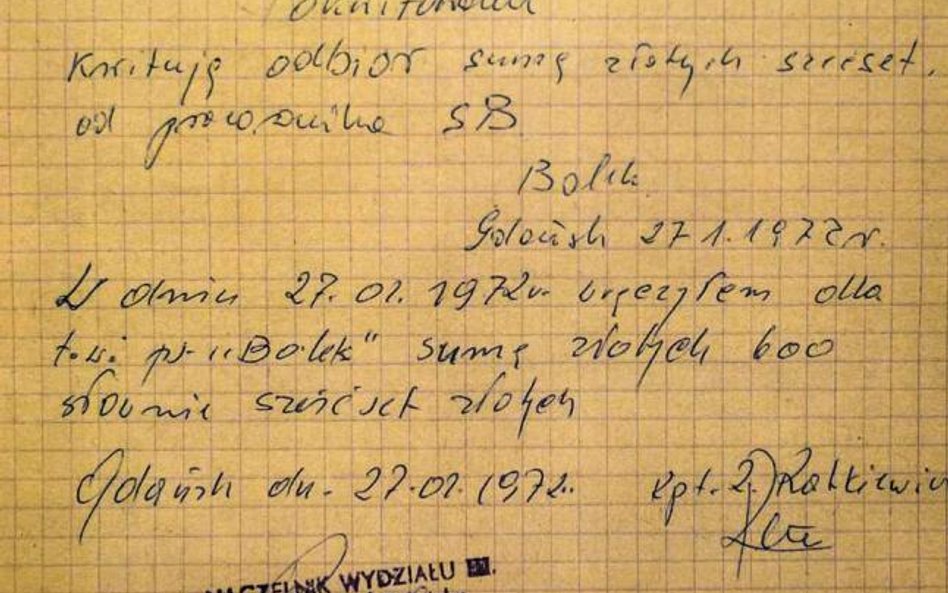 Kwituję odbior sumę złotych szesset.
od pracownika SB
Bolek
Gdańsk 27.1.1972 r.
W dniu 27.01.1972r. wręczyłem dla
t.w. ps. "Bolek" sumę złotych 600
słownie sześćset złotych
Gdańsk dn. 27.01.1972. kpt. Z. Ratkiewicz
NACZELNIK WYDZIAŁU III.